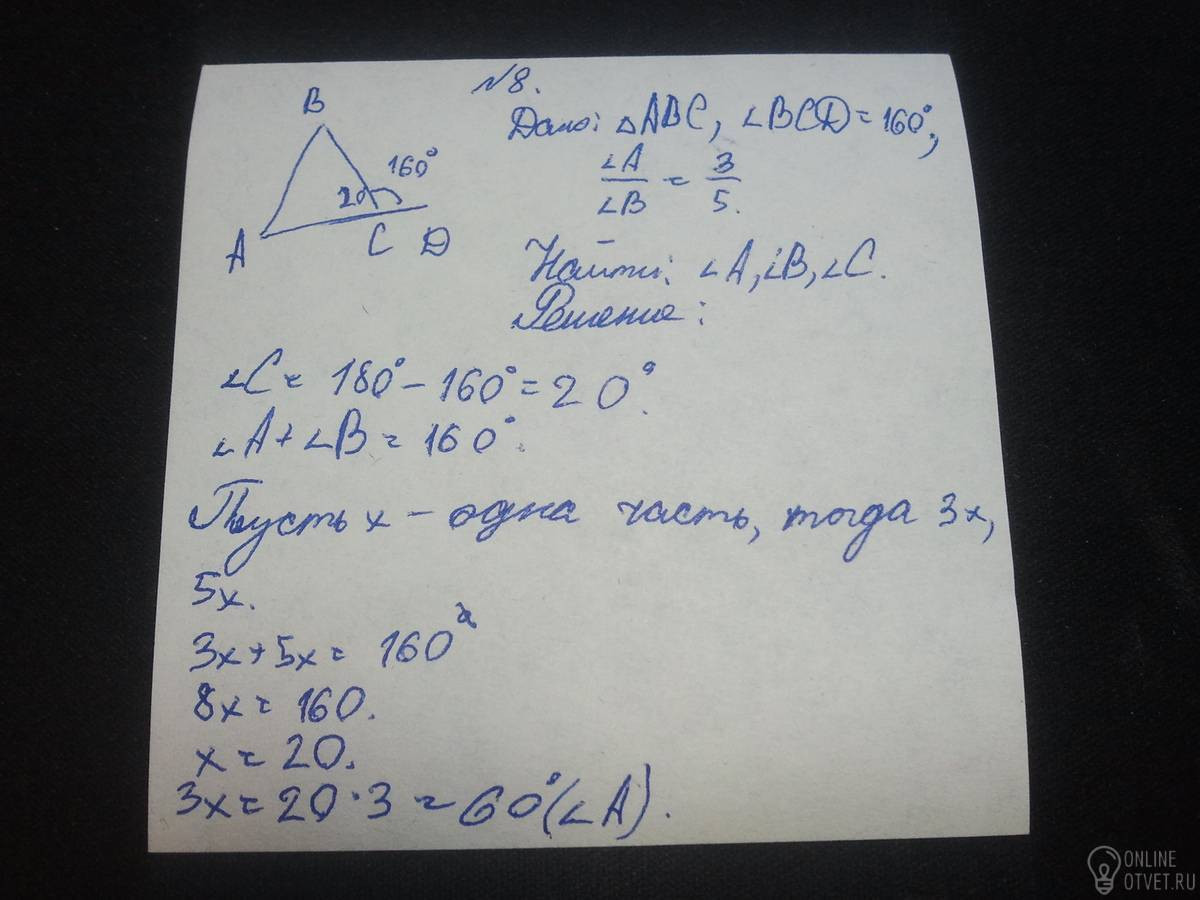 №8.
B
160°
20
A
C D
Дано: △ABC, ∠BCD = 160°,
∠A/∠B = 3/5.
Найти: ∠A, ∠B, ∠C.
Решение:
∠C = 180° - 160° = 20°.
∠A + ∠B = 160°.
Пусть x - одна часть, тогда 3x,
5x.
3x + 5x = 160°
8x = 160.
x = 20.
3x = 20 · 3 = 60° (∠A).
ONLINE
OTVET.RU